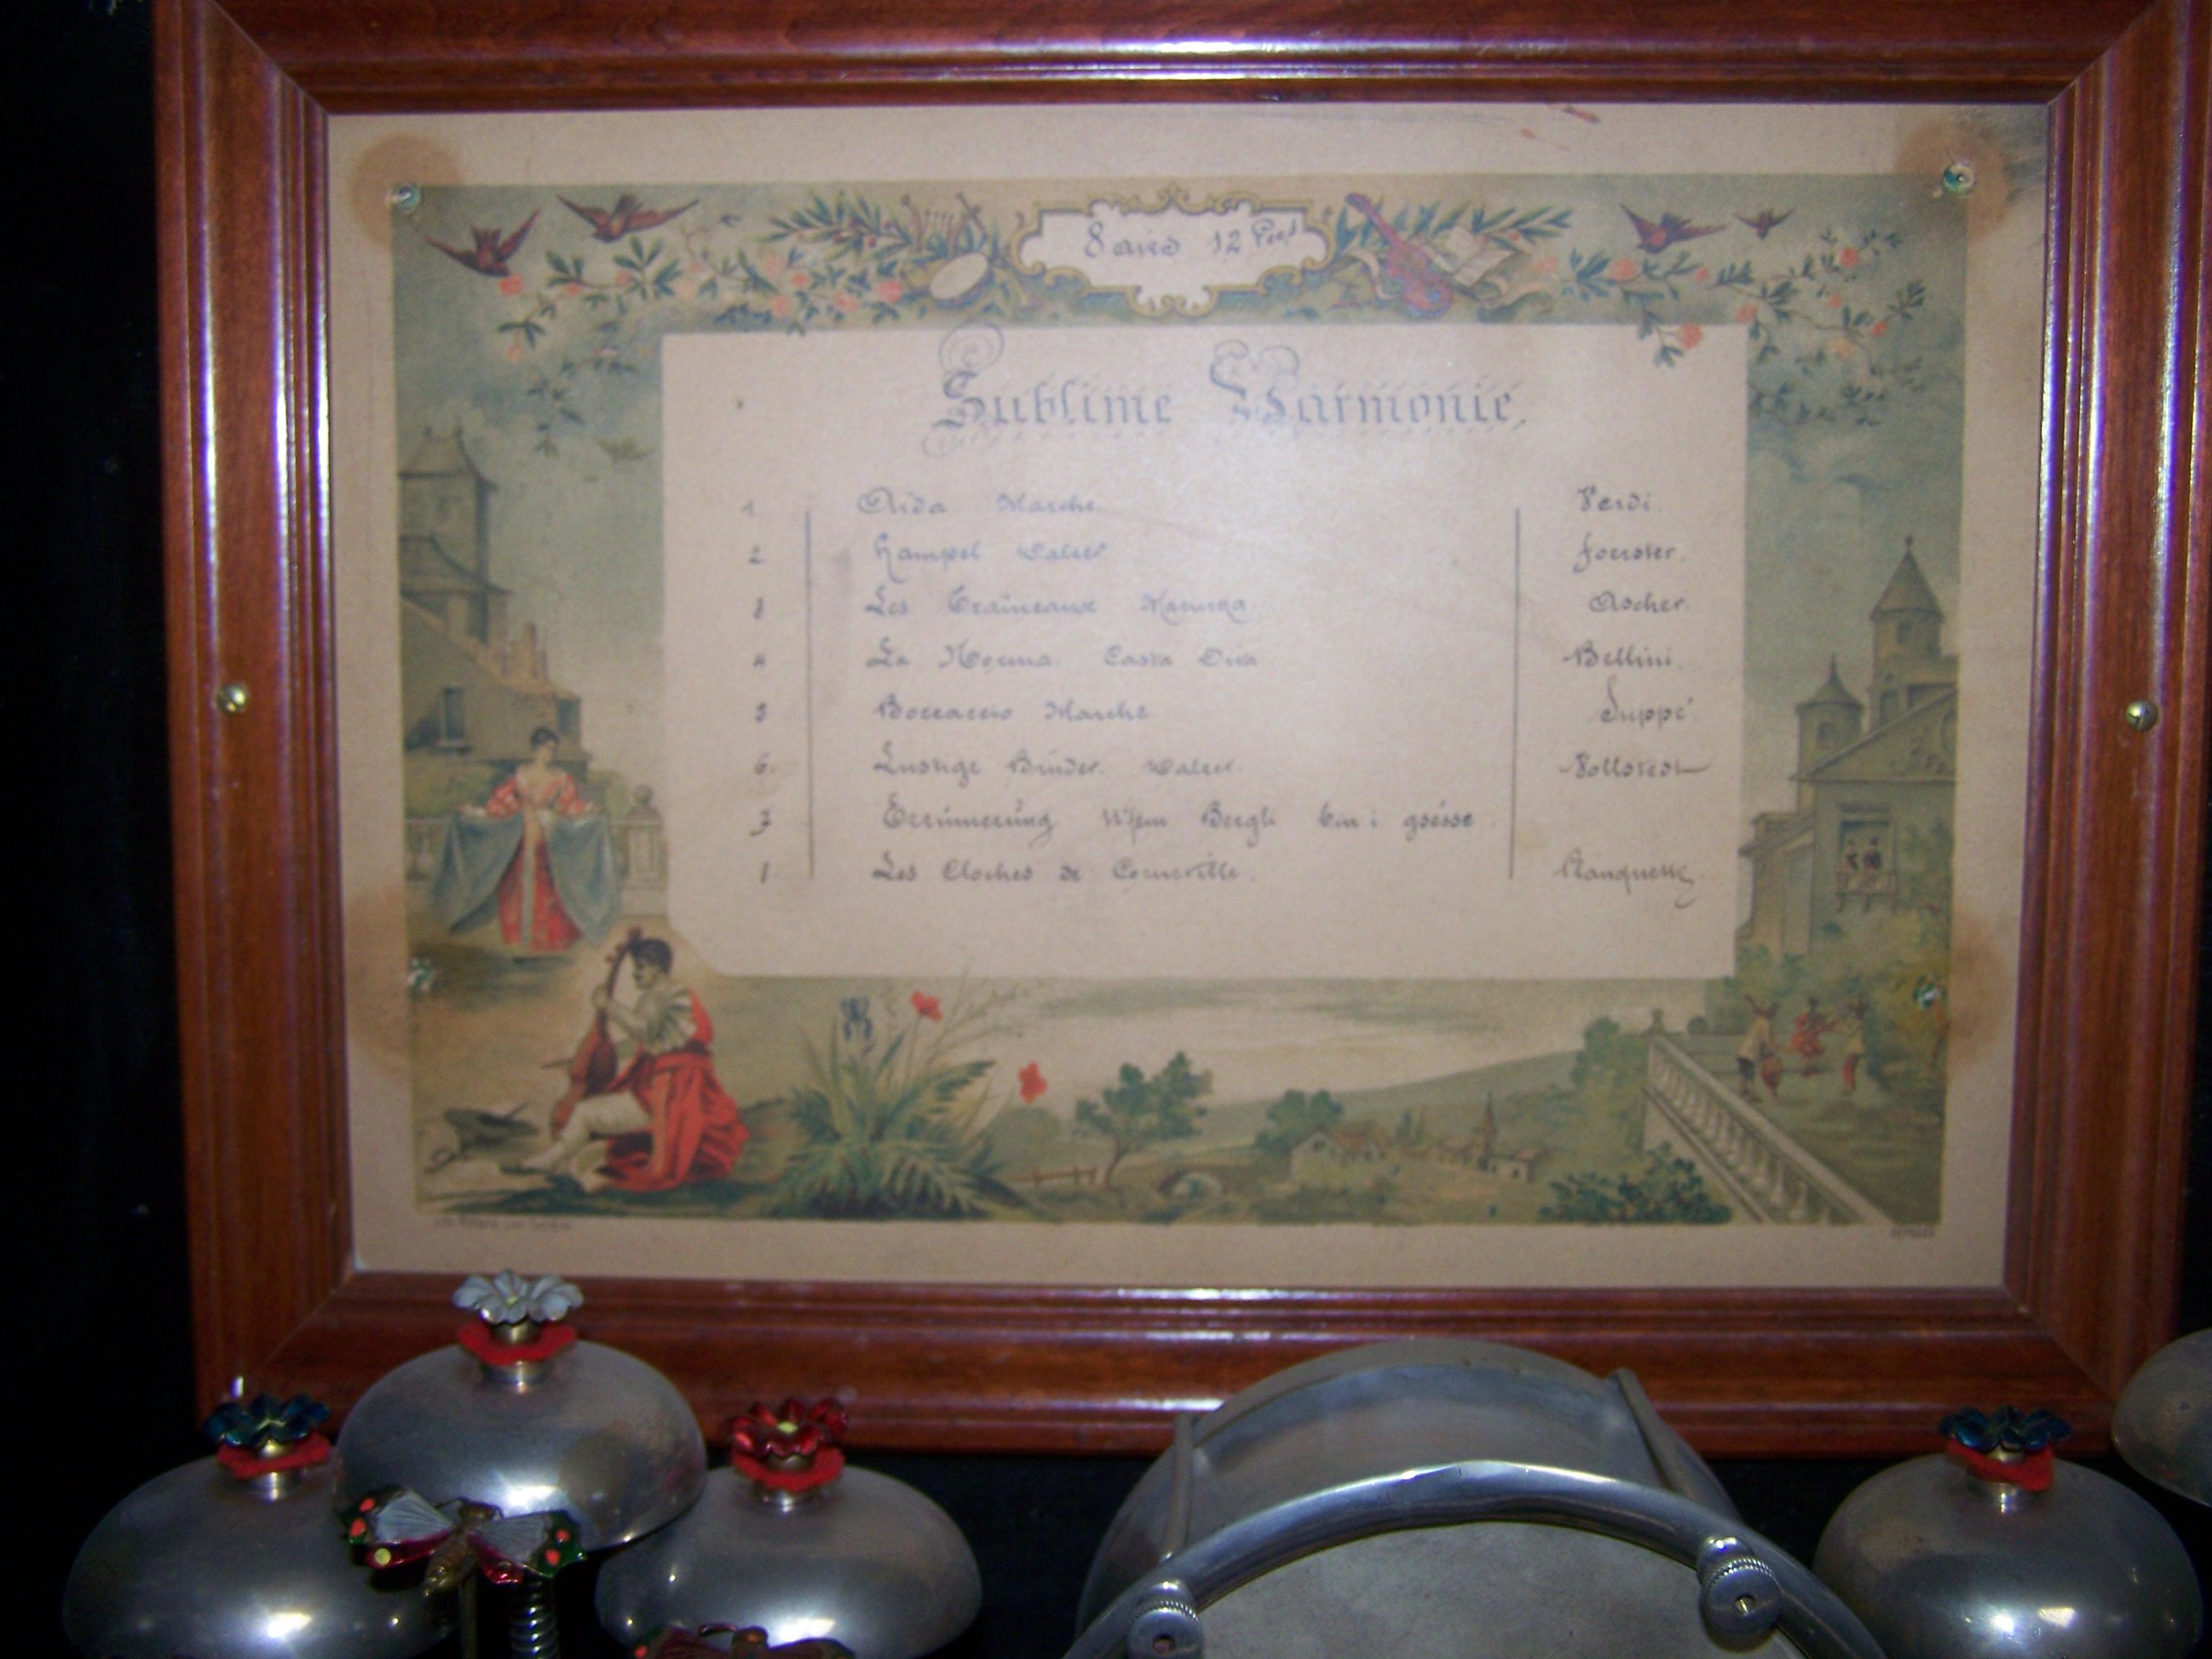 8 airs 12 Pces
Sublime Harmonie,
1 Aida Marche. Verdi.
2 Walzer Foerster.
3 Les Traineaux Mazurka Ascher.
4 La Norma. Casta Diva Bellini.
5 Boccaccio Marche Suppé
6. Lustige Brüder. Walzer. Vollstedt
7 Errinnerung Bergli bin i gsésse.
8 Les Cloches de Corneville. Planquette.